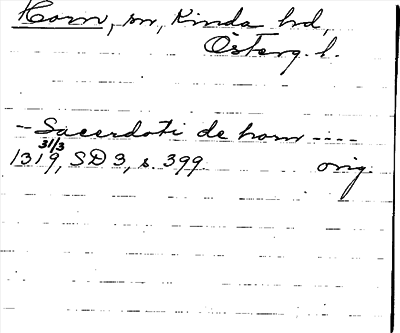 Horn, sn, Kinda hd,
Österg. l.
- Sacerdoti de horn ----
31/3
1319, SD 3, s. 399. orig.